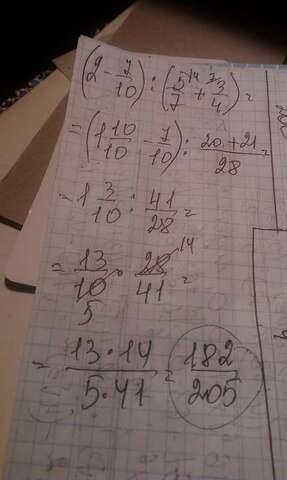 (2 - 7/10) : (5/7 + 3/4) =
= (1 10/10 - 7/10) : (20 + 21)/28 =
= 1 3/10 : 41/28 =
= 13/10 5 · 28/41 14 =
= (13 · 14)/(5 · 41) = 182/205